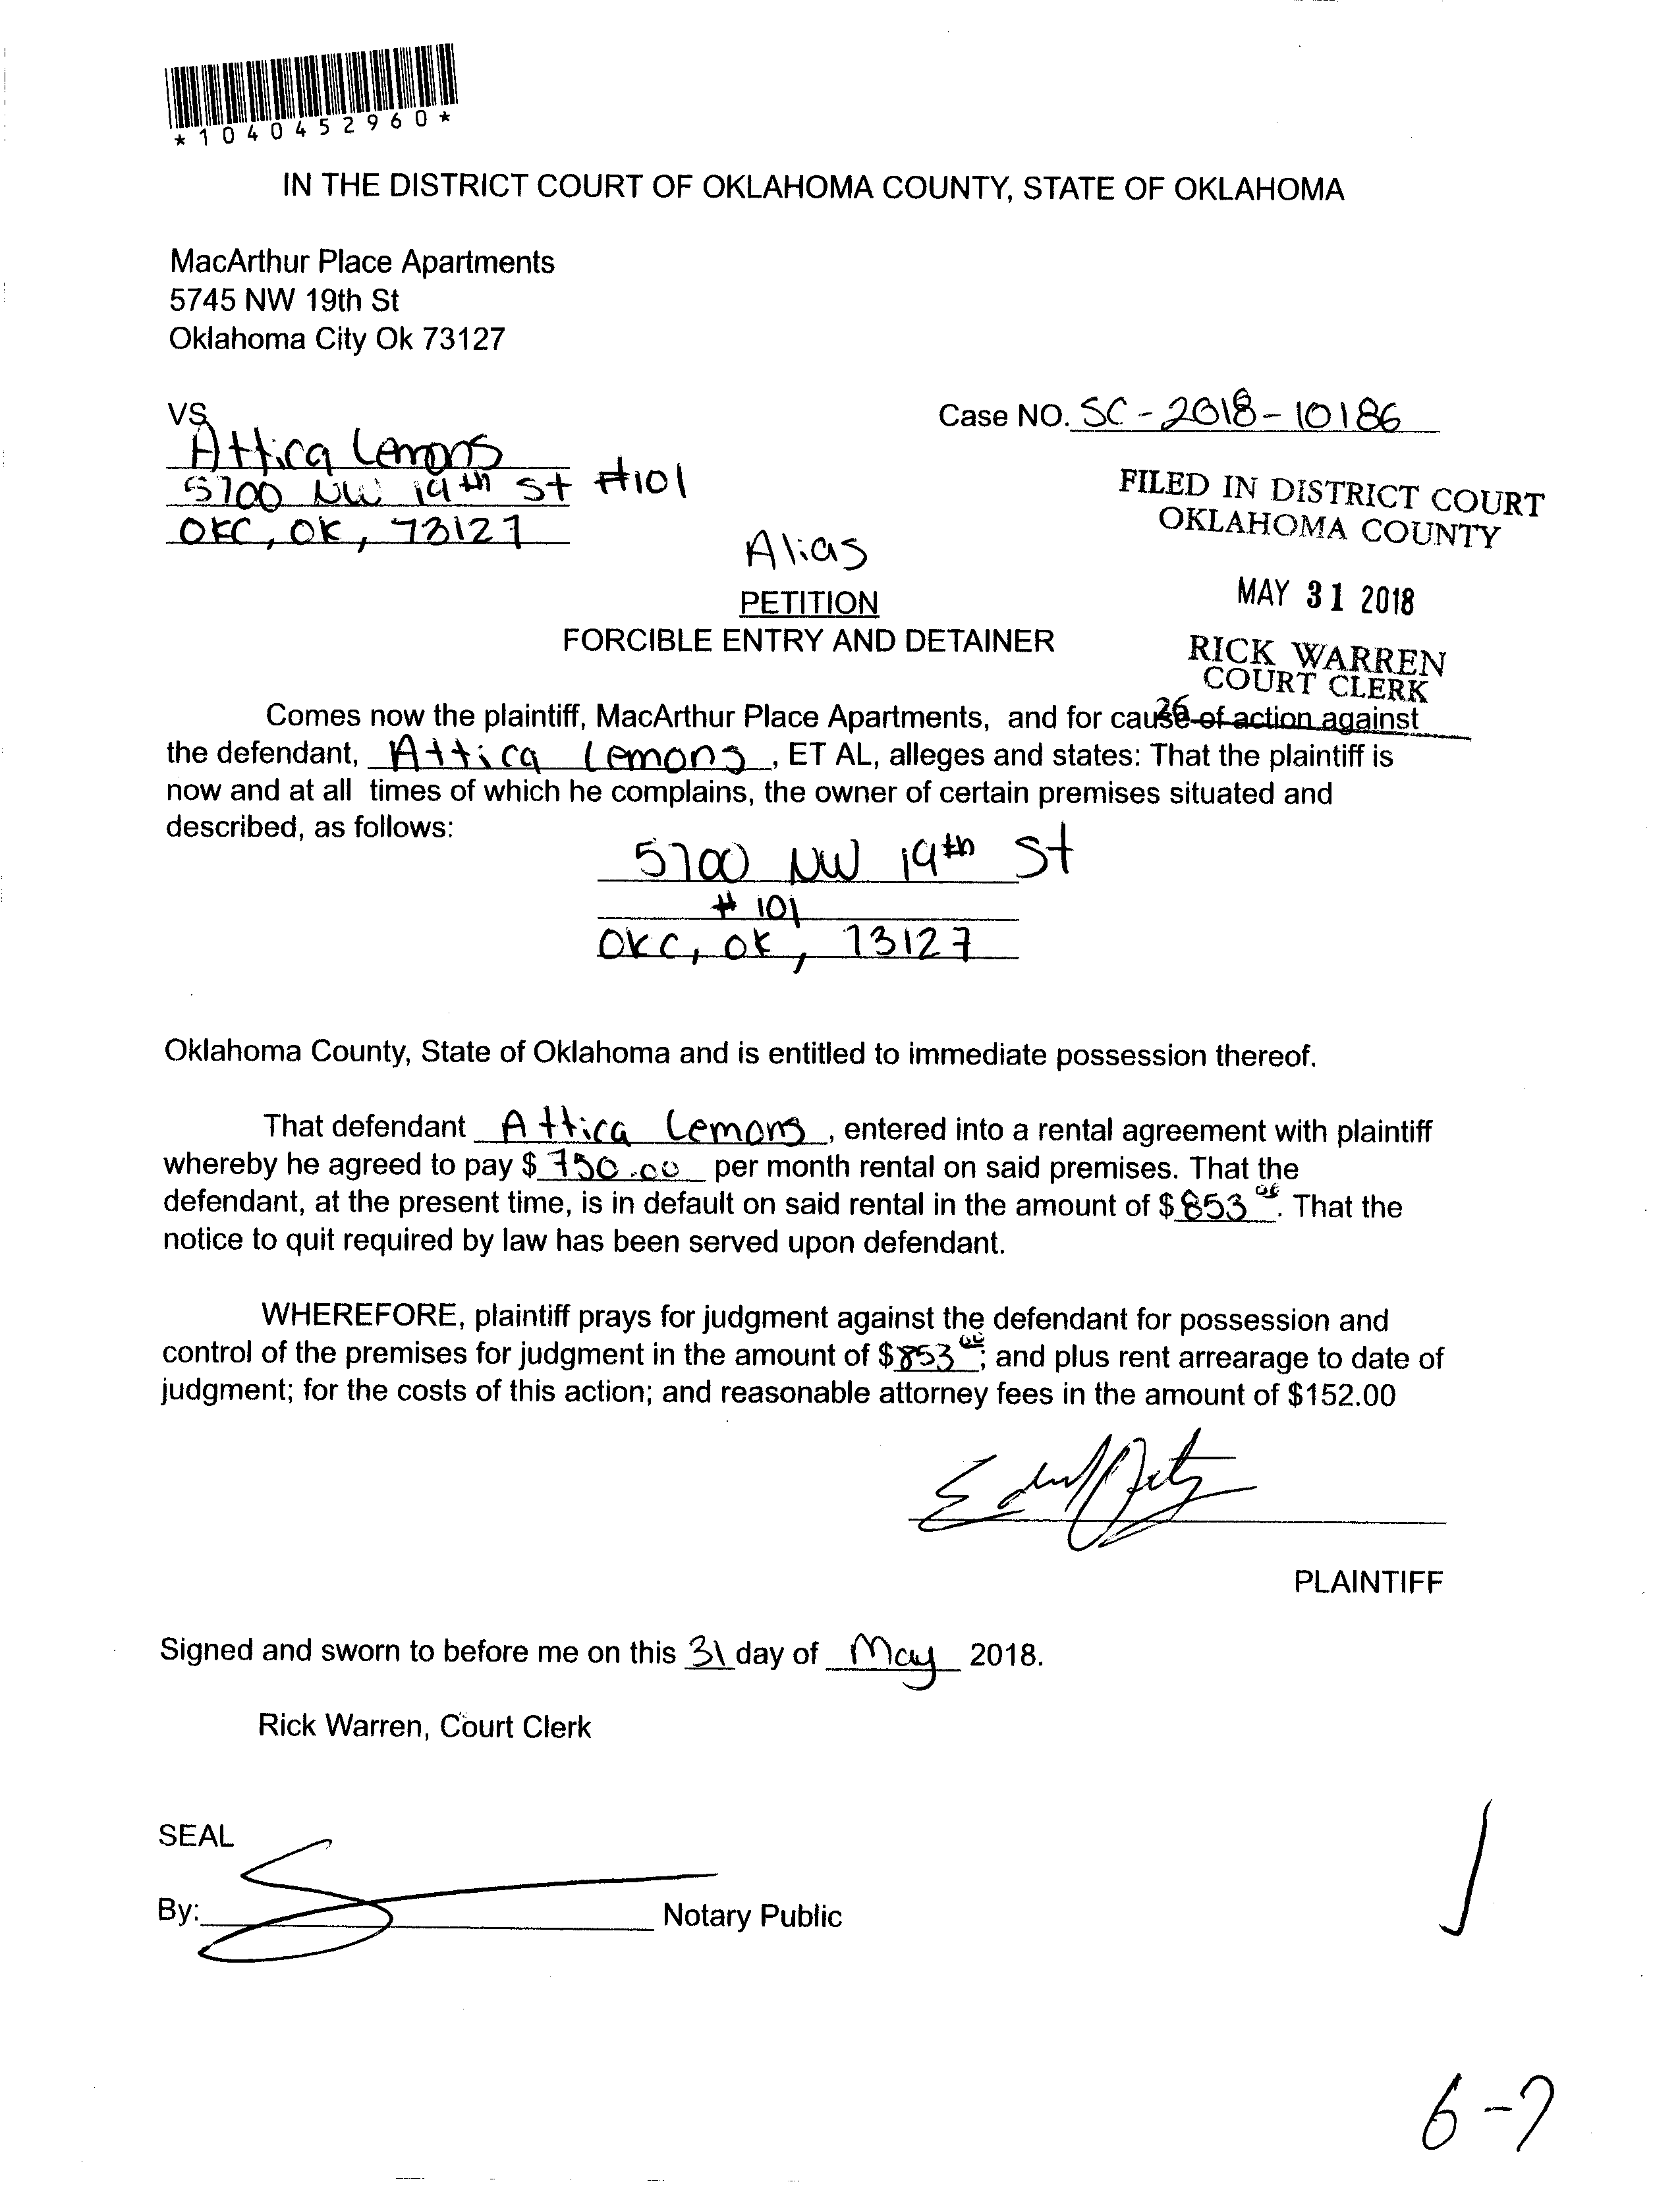 *1040452960*
IN THE DISTRICT COURT OF OKLAHOMA COUNTY, STATE OF OKLAHOMA
MacArthur Place Apartments
5745 NW 19th St
Oklahoma City Ok 73127
VS
Case NO. SC-2018-10186
Attica Lemons
5700 NW 19th St #101
OKC, OK, 73127
FILED IN DISTRICT COURT
OKLAHOMA COUNTY
MAY 31 2018
RICK WARREN
COURT CLERK
26
Alias
PETITION
FORCIBLE ENTRY AND DETAINER
Comes now the plaintiff, MacArthur Place Apartments, and for cause of action against
the defendant, Attica Lemons, ET AL, alleges and states: That the plaintiff is
now and at all times of which he complains, the owner of certain premises situated and
described, as follows:
5700 NW 19th St
# 101
OKC, OK, 73127
Oklahoma County, State of Oklahoma and is entitled to immediate possession thereof.
That defendant Attica Lemons, entered into a rental agreement with plaintiff
whereby he agreed to pay $ 750.00 per month rental on said premises. That the
defendant, at the present time, is in default on said rental in the amount of $ 853 00. That the
notice to quit required by law has been served upon defendant.
WHEREFORE, plaintiff prays for judgment against the defendant for possession and
control of the premises for judgment in the amount of $ 853 00; and plus rent arrearage to date of
judgment; for the costs of this action; and reasonable attorney fees in the amount of $152.00
PLAINTIFF
Signed and sworn to before me on this 31 day of May 2018.
Rick Warren, Court Clerk
SEAL
By: Notary Public
6-7